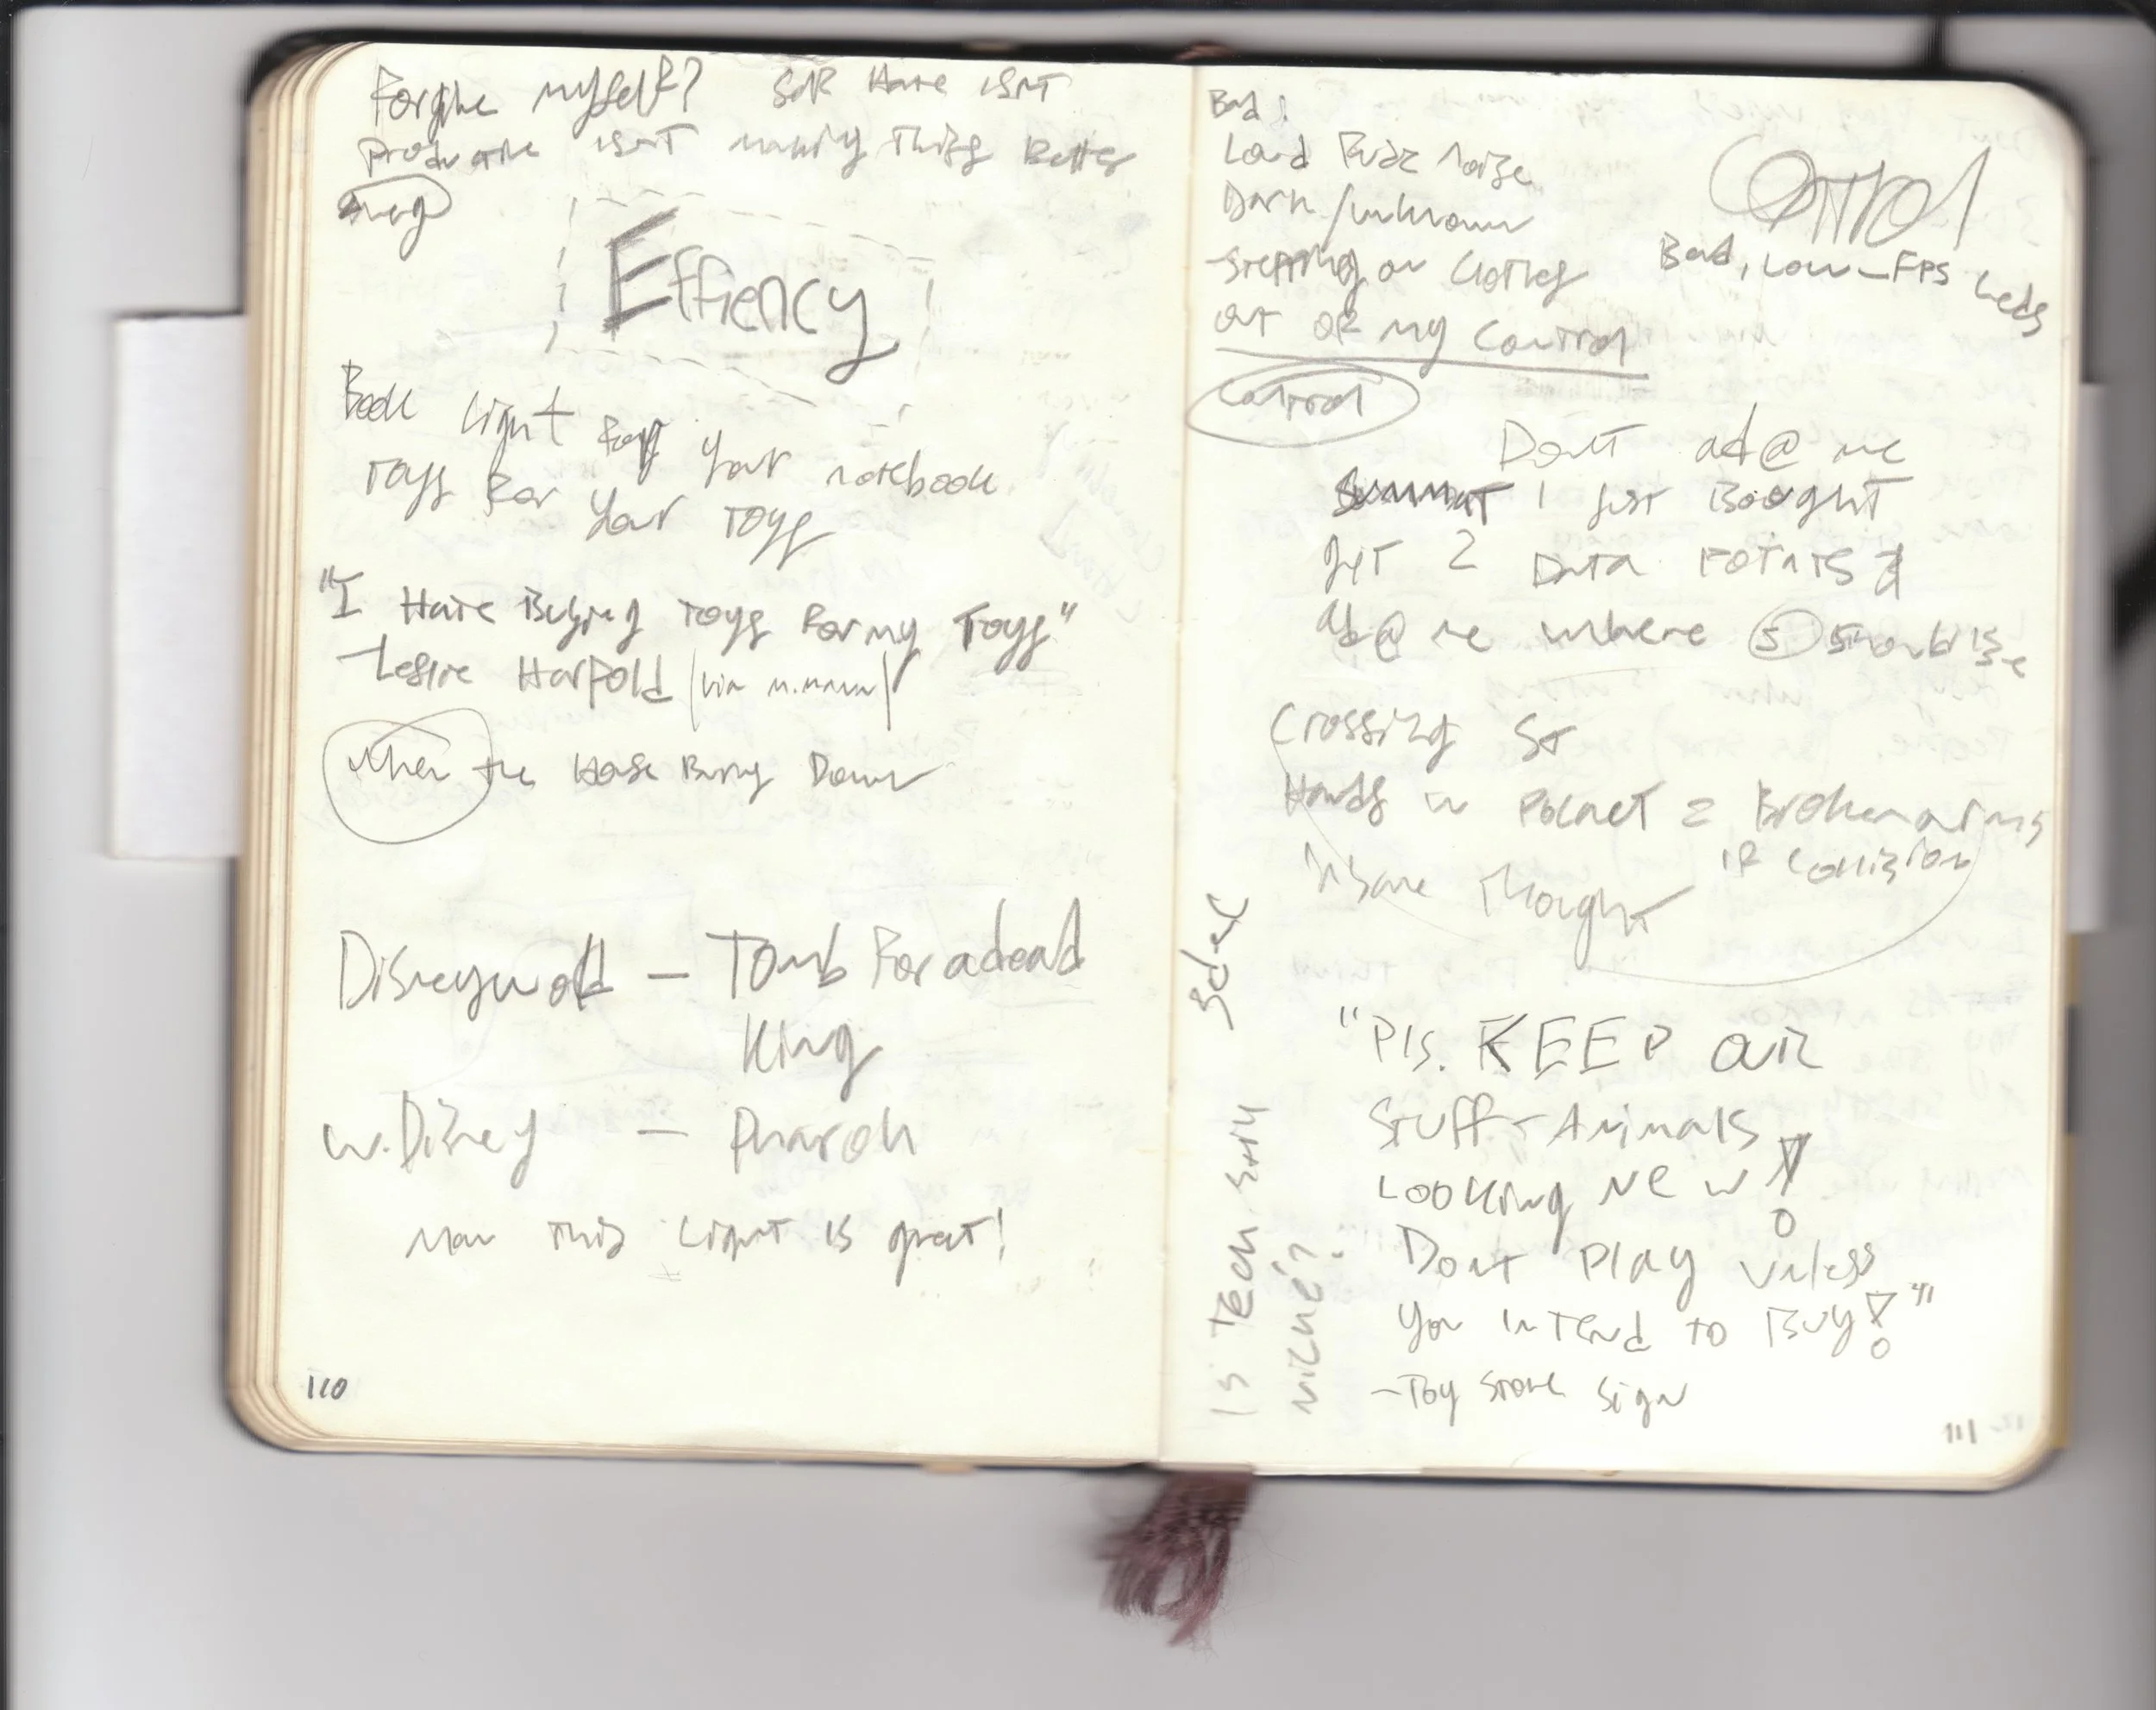 Forgive myself? Self Hate isnt
Productive isnt making things Better
Effiency
Book Light For your notebook
Toys For Your Toys
"I Hate Buying Toys For my Toys"
-Leslie Harpold (via m.mann)
When the House Burns Down
Disneyworld - Tomb For a dead
King
W. Disney - Pharoh
Man This Light is great!
110
Bad:
Loud Fuzz noise
Dark/unknown
-Stepping on Clothes
out of my Control
Control
Bad, Low-FPS Leds
Control
Dont ad@ me
I just Bought
jet 2 Data Points
ad@ me where 5 should Be
Crossing St
Hands in Pocket = Broken arms
if Collision
insane Thought
Is Tech still
niché?
"Pls. KEEP our
Stuff-Animals
Looking New!
Dont Play unless
You intend to Buy!"
-Toy Store Sign
111